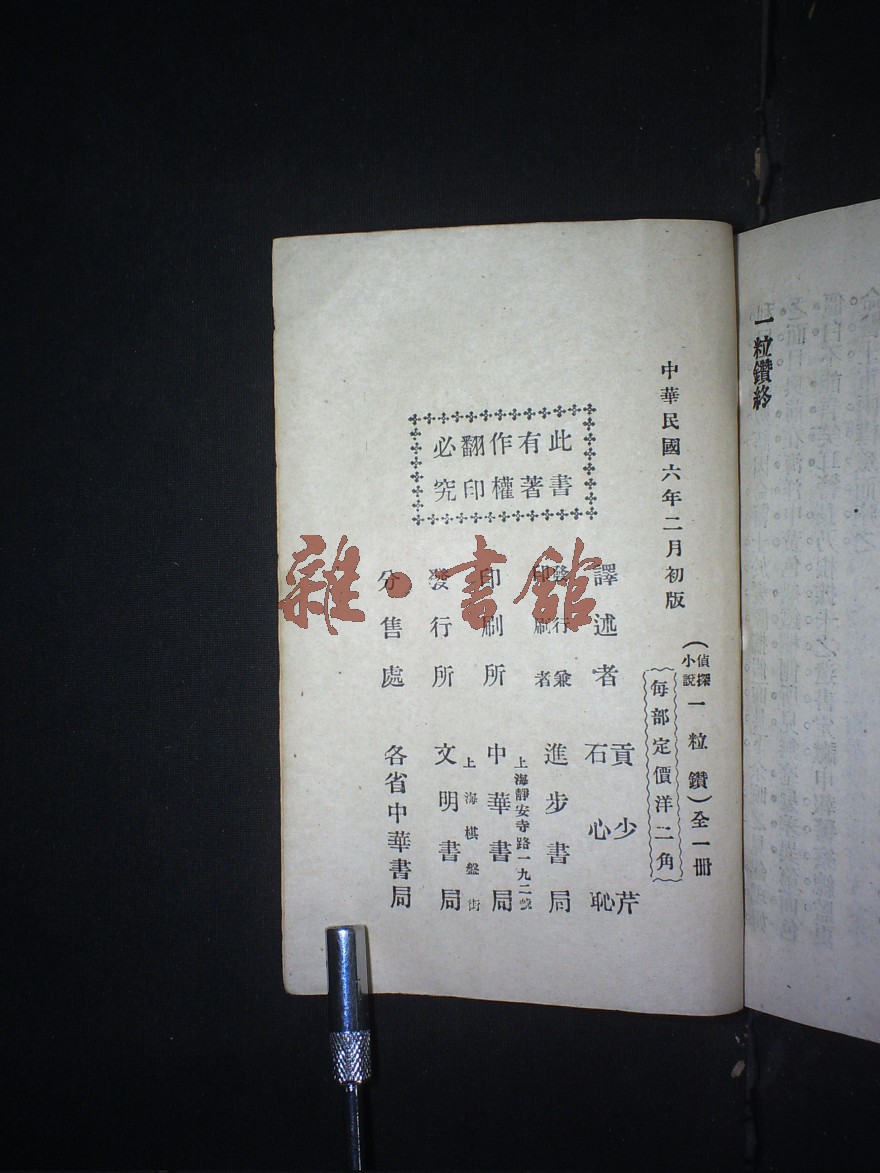 一粒鑽終
中華民國六年二月初版
（偵探小說一粒鑽）全一册
每部定價洋二角
此書
有著
作權
翻印
必究
譯述者 貢少芹
石心恥
發行兼印刷者 進步書局
上海靜安寺路一九二號
印刷所 中華書局
上海棋盤街
發行所 文明書局
分售處 各省中華書局
雜·書館